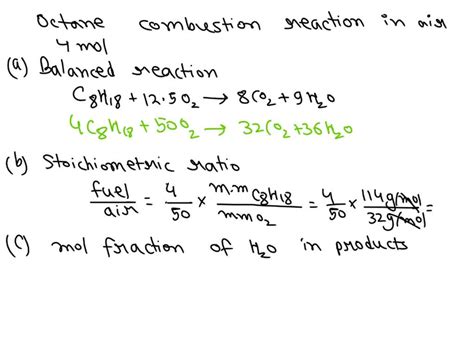 Octane combustion reaction in air
4 mol
(a) Balanced reaction
C₈H₁₈ + 12.5O₂ → 8CO₂ + 9H₂O
4C₈H₁₈ + 50O₂ → 32CO₂ + 36H₂O
(b) Stoichiometric ratio
fuel/air = 4/50 × m.m C₈H₁₈/mm O₂ = 4/50 × 114g/mol/32g/mol =
(C) mol fraction of H₂O in products